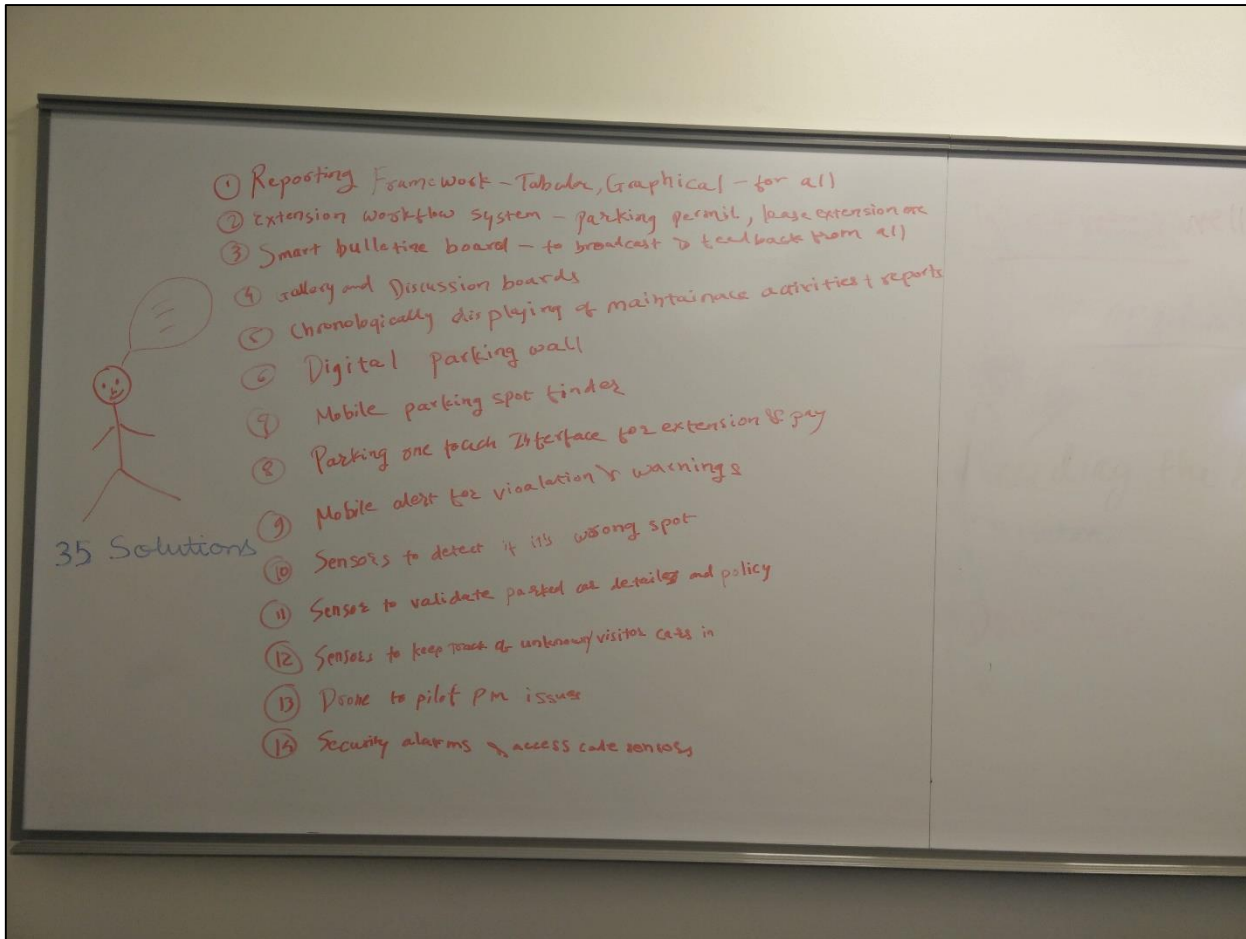 ① Reporting Framework - Tabular, Graphical - for all
② Extension workflow system - parking permit, lease extension etc
③ Smart bulletine board - to broadcast & feedback from all
④ Gallery and Discussion boards
⑤ Chronologically displaying of maintainace activities + reports
⑥ Digital parking wall
⑦ Mobile parking spot finder
⑧ Parking one touch Interface for extension & pay
⑨ Mobile alert for vioalation & warnings
⑩ Sensors to detect if it's wrong spot
⑪ Sensor to validate parked car details and policy
⑫ Sensors to keep track of unknown/visitor cars in
⑬ Drone to pilot PM issues
⑭ Security alarms & access code sensors
35 Solutions